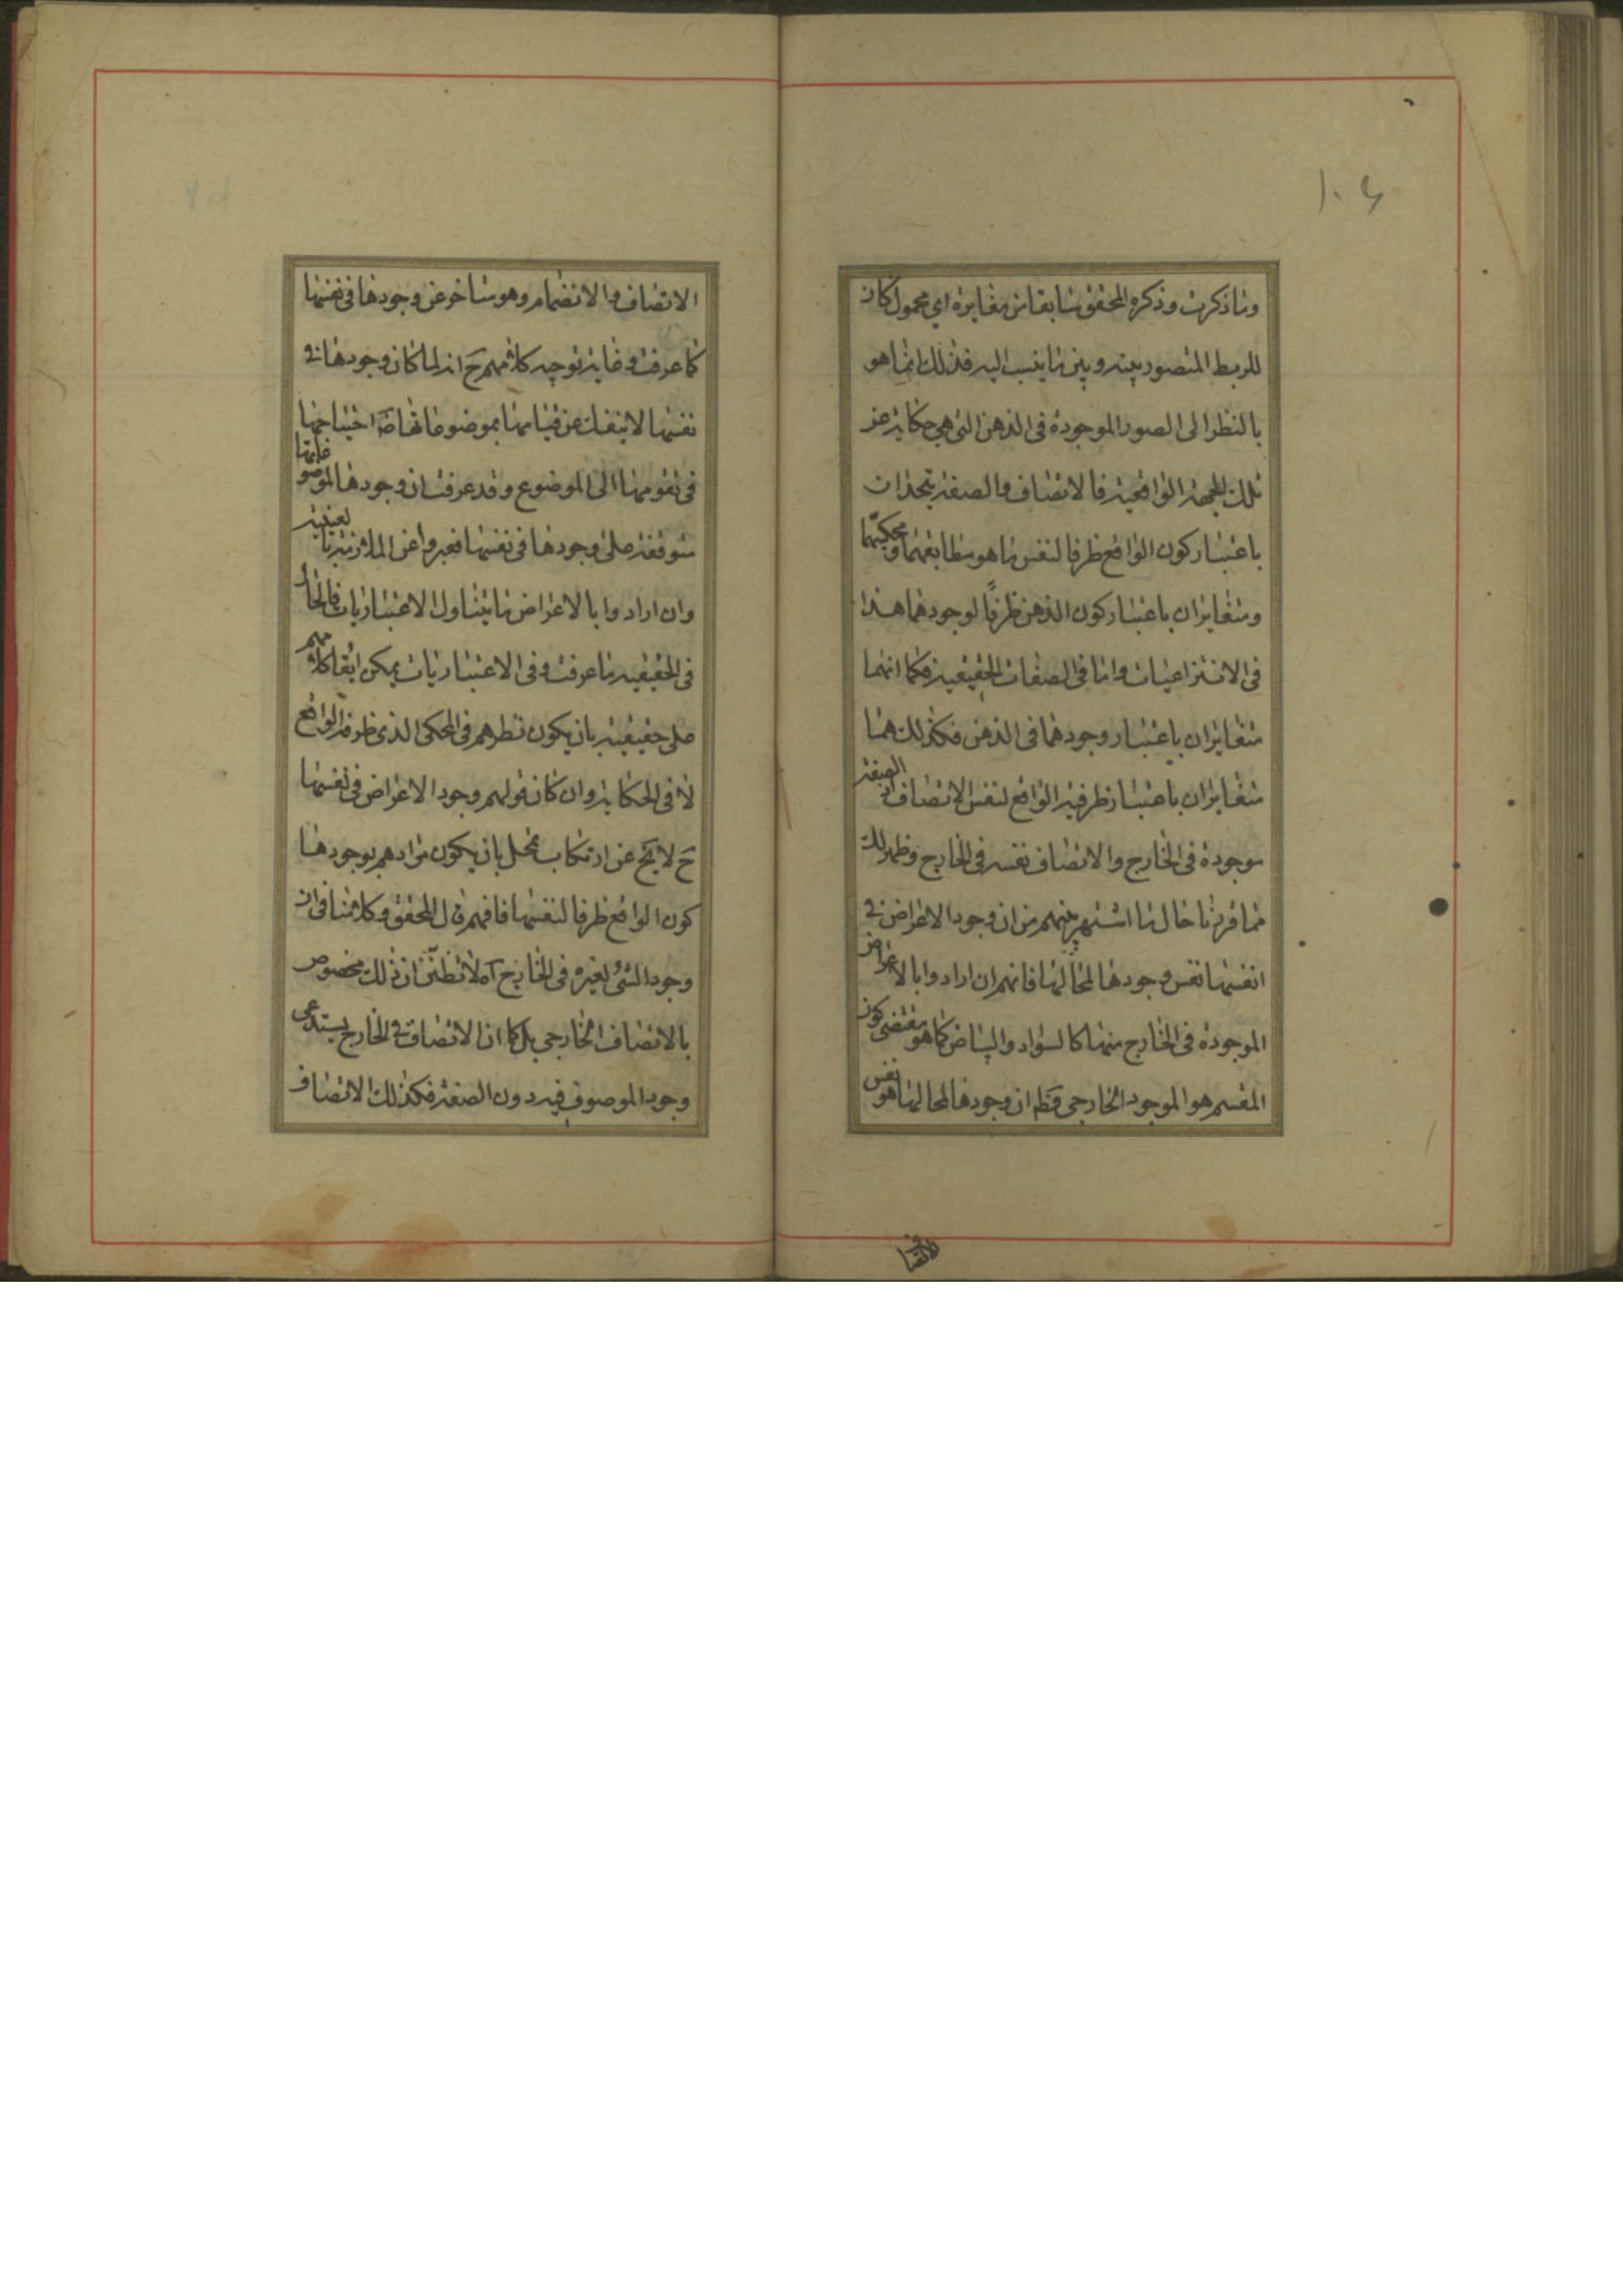 ١٠٤
وما ذكرت وذكره المحقق سابقا من مغايرة اي محمول كان
للربط المتصور بينه وبين ما ينسب اليه فذلك انما هو
بالنظر الى الصور الموجودة فى الذهن التى هى حكاية عن
تلك الجهة الواقعية فالاتصاف والصفة يتحدان
باعتبار كون الواقع ظرفا لنفس ما هو مطابقهما ومحكيهما
ومتغايران باعتبار كون الذهن ظرفًا لوجودهما هذا
فى الانتزاعيات واما فى الصفات الحقيقية فكما انهما
متغايران باعتبار وجودهما فى الذهن فكذلك هما
متغايران باعتبار ظرفية الواقع لنفس الاتصاف اذ الصفة
موجودة فى الخارج والاتصاف نفسه فى الخارج وظهر لك
مما قررنا حال ما اشتهر بينهم من ان وجود الاعراض فى
انفسها نفس وجودها لمحالها فانهم ان ارادوا بالاعراض
الموجودة فى الخارج منها كالسواد والبياض كما هو مقتضى كون
المقسم هو الموجود الخارجى فظ ان وجودها لمحالها هو نفس
الاتصاف
الاتصاف والانضمام وهو متاخر عن وجودها فى نفسها
كما عرفت وغاية توجيه كلامهم ح انه لما كان وجودها فى
نفسها لا ينفك عن قيامها بموضوعاتها احتياجها
فى تقومها الى الموضوع وقد عرفت ان وجودها لموضوعاتها
متوقفة على وجودها فى نفسها فعبروا عن الملازمة بالعينية
وان ارادوا بالاعراض ما يتناول الاعتباريات فالحال
فى الحقيقية ما عرفت وفى الاعتباريات يمكن ابقاء كلامهم
على حقيقيته بان يكون نظرهم فى المحكى الذى ظرفه الواقع
لا فى الحكاية وان كان قولهم وجود الاعراض فى نفسها
ح لا يخ عن ارتكاب تمحل بان يكون مرادهم بوجودها
كون الواقع ظرفا لنفسها فافهم قال المحقق وكلامنا فى ان
وجود الشئ لغيره فى الخارج آه لا تظنن ان ذلك مخصوص
بالاتصاف الخارجى بل كما ان الاتصاف فى الخارج يستدعى
وجود الموصوف فيه دون الصفة فكذلك الاتصاف